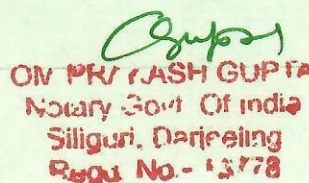 Gupta
OM PRAKASH GUPTA
Notary Govt Of India
Siliguri, Darjeeling
Regd. No.-